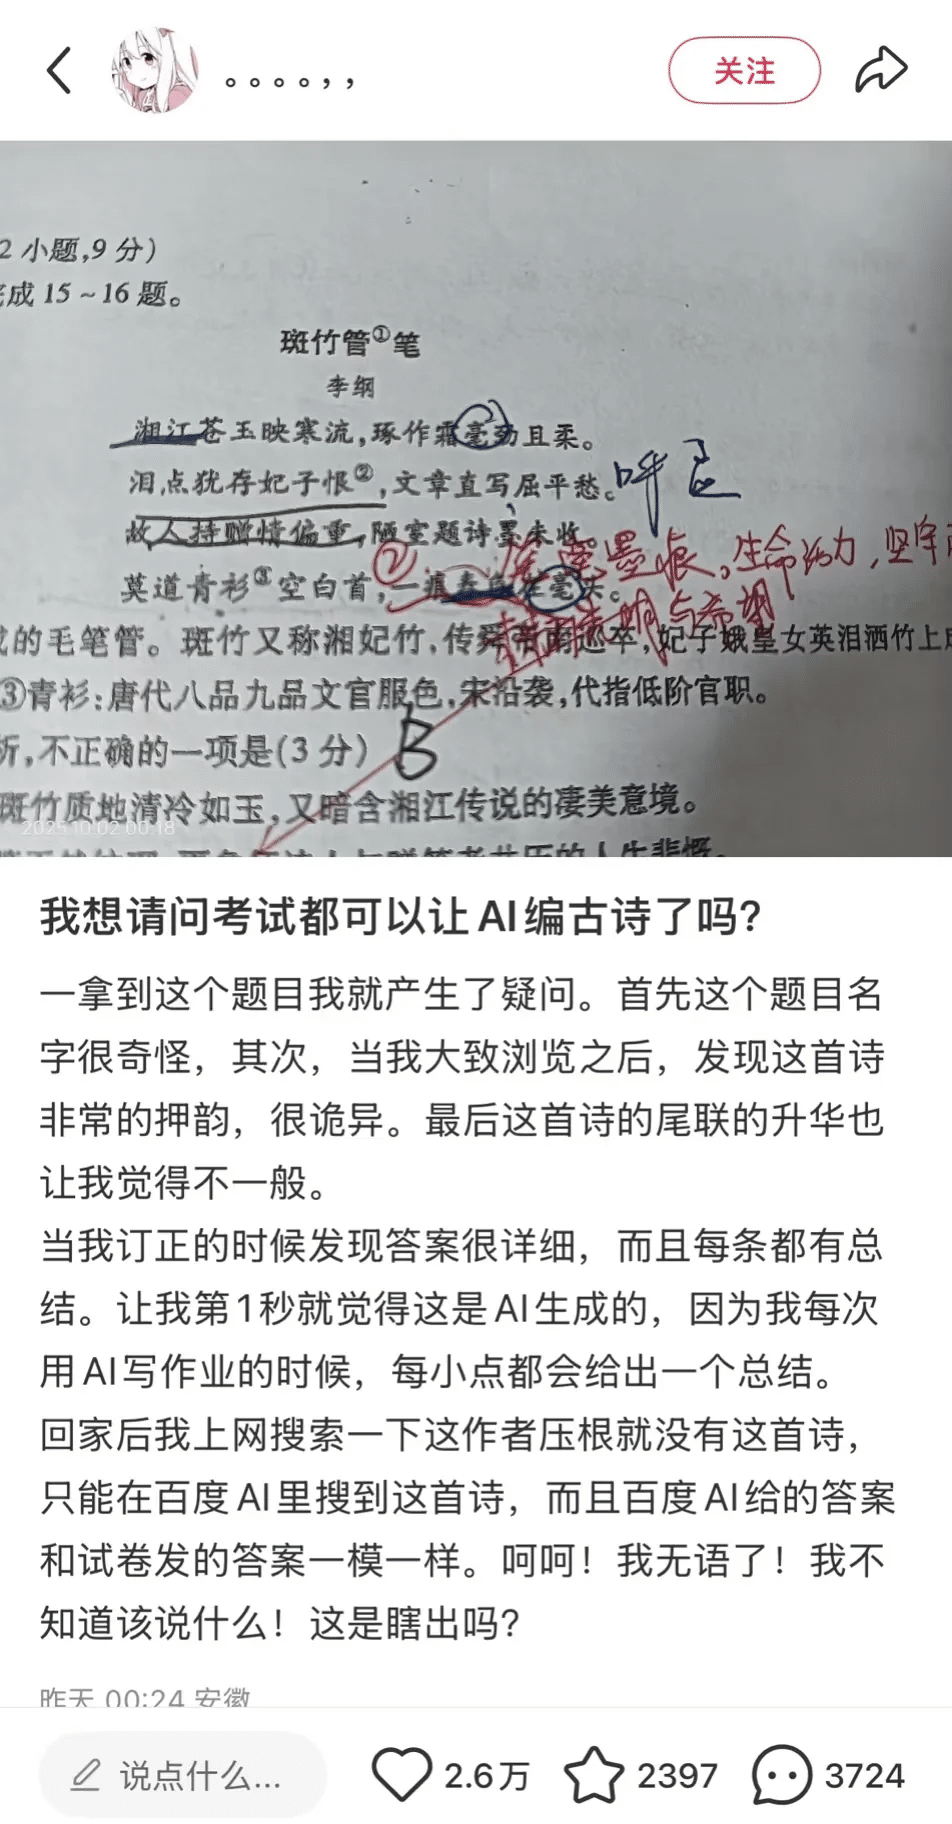 。。。。，，
关注
2 小题,9 分)
成 15 ~ 16 题。
斑竹管①笔
李纲
湘江苍玉映寒流,琢作霜毫劲且柔。
泪点犹存妃子恨②,文章直写屈平愁。
呼应
故人持赠情偏重,陋室题诗墨未收。
墨痕。生命活力,坚守
莫道青衫③空白首,一痕春色在毫头。
②
与希望
的毛笔管。斑竹又称湘妃竹,传舜帝南巡卒,妃子娥皇女英泪洒竹上
③青衫:唐代八品九品文官服色,宋沿袭,代指低阶官职。
析,不正确的一项是(3 分)
B
斑竹质地清冷如玉,又暗含湘江传说的凄美意境。
2025.10.02 00:18
我想请问考试都可以让AI编古诗了吗？
一拿到这个题目我就产生了疑问。首先这个题目名
字很奇怪，其次，当我大致浏览之后，发现这首诗
非常的押韵，很诡异。最后这首诗的尾联的升华也
让我觉得不一般。
当我订正的时候发现答案很详细，而且每条都有总
结。让我第1秒就觉得这是AI生成的，因为我每次
用AI写作业的时候，每小点都会给出一个总结。
回家后我上网搜索一下这作者压根就没有这首诗，
只能在百度AI里搜到这首诗，而且百度AI给的答案
和试卷发的答案一模一样。呵呵！我无语了！我不
知道该说什么！这是瞎出吗？
昨天 00:24 安徽
说点什么...
2.6万
2397
3724